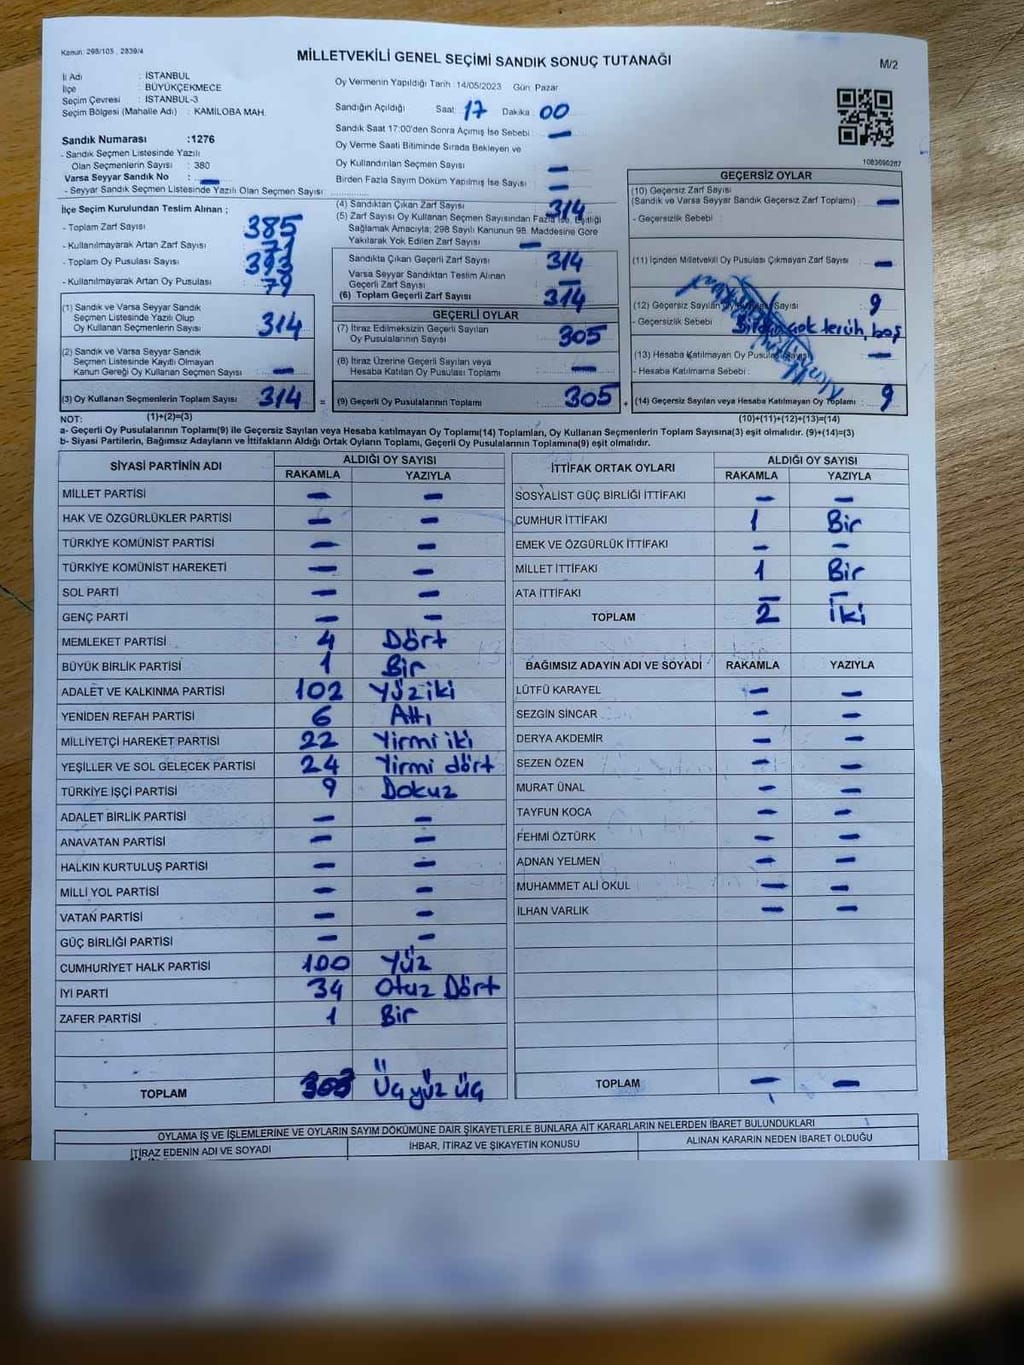 Kanun: 298/105 , 2839/4
MİLLETVEKİLİ GENEL SEÇİMİ SANDIK SONUÇ TUTANAĞI
M/2
İl Adı : İSTANBUL
İlçe : BÜYÜKÇEKMECE
Seçim Çevresi : İSTANBUL-3
Seçim Bölgesi (Mahalle Adı) : KAMİLOBA MAH.
Oy Vermenin Yapıldığı Tarih : 14/05/2023 Gün: Pazar
Sandığın Açıldığı Saat: 17 Dakika : 00
Sandık Saat 17:00'den Sonra Açımış İse Sebebi : —
Oy Verme Saati Bitiminde Sırada Bekleyen ve
Oy Kullandırılan Seçmen Sayısı : —
Birden Fazla Sayım Döküm Yapılmış İse Sayısı : —
Sandık Numarası :1276
- Sandık Seçmen Listesinde Yazılı
Olan Seçmenlerin Sayısı : 380
Varsa Seyyar Sandık No : —
- Seyyar Sandık Seçmen Listesinde Yazılı Olan Seçmen Sayısı:
1083690287
İlçe Seçim Kurulundan Teslim Alınan ;
- Toplam Zarf Sayısı : 385
- Kullanılmayarak Artan Zarf Sayısı : 71
- Toplam Oy Pusulası Sayısı : 393
- Kullanılmayarak Artan Oy Pusulası : 79
(1) Sandık ve Varsa Seyyar Sandık
Seçmen Listesinde Yazılı Olup
Oy Kullanan Seçmenlerin Sayısı : 314
(2) Sandık ve Varsa Seyyar Sandık
Seçmen Listesinde Kayıtlı Olmayan
Kanun Gereği Oy Kullanan Seçmen Sayısı : —
(3) Oy Kullanan Seçmenlerin Toplam Sayısı : 314 =
(1)+(2)=(3)
(4) Sandıktan Çıkan Zarf Sayısı : 314
(5) Zarf Sayısı Oy Kullanan Seçmen Sayısından Fazla ise, Eşitliği
Sağlamak Amacıyla; 298 Sayılı Kanunun 98. Maddesine Göre
Yakılarak Yok Edilen Zarf Sayısı : —
Sandıkta Çıkan Geçerli Zarf Sayısı : 314
Varsa Seyyar Sandıktan Teslim Alınan
Geçerli Zarf Sayısı : —
(6) Toplam Geçerli Zarf Sayısı : 314
GEÇERLİ OYLAR
(7) İtiraz Edilmeksizin Geçerli Sayılan
Oy Pusulasının Sayısı : 305
(8) İtiraz Üzerine Geçerli Sayılan veya
Hesaba Katılan Oy Pusulası Toplamı : —
(9) Geçerli Oy Pusulalarının Toplamı : 305 +
GEÇERSİZ OYLAR
(10) Geçersiz Zarf Sayısı
(Sandık ve Varsa Seyyar Sandık Geçersiz Zarf Toplamı) : —
- Geçersizlik Sebebi :
(11) İçinden Milletvekil Oy Pusulası Çıkmayan Zarf Sayısı : —
(12) Geçersiz Sayılan Oy Pusulası Sayısı : 9
- Geçersizlik Sebebi : Birden çok tercih, boş
(13) Hesaba Katılmayan Oy Pusulası Sayısı : —
- Hesaba Katılmama Sebebi :
(14) Geçersiz Sayılan veya Hesaba Katılmayan Oy Toplamı : 9
(10)+(11)+(12)+(13)=(14)
NOT:
a- Geçerli Oy Pusulaları Toplamı(9) ile Geçersiz Sayılan veya Hesaba katılmayan Oy Toplamı(14) Toplamları, Oy Kullanan Seçmenlerin Toplam Sayısına(3) eşit olmalıdır. (9)+(14)=(3)
b- Siyasi Partilerin, Bağımsız Adayların ve İttifakların Aldığı Ortak Oyların Toplamı, Geçerli Oy Pusulalarının Toplamına(9) eşit olmalıdır.
SİYASİ PARTİNİN ADI ALDIĞI OY SAYISI
RAKAMLA YAZIYLA
MİLLET PARTİSİ — —
HAK VE ÖZGÜRLÜKLER PARTİSİ — —
TÜRKİYE KOMÜNİST PARTİSİ — —
TÜRKİYE KOMÜNİST HAREKETİ — —
SOL PARTİ — —
GENÇ PARTİ — —
MEMLEKET PARTİSİ 4 Dört
BÜYÜK BİRLİK PARTİSİ 1 Bir
ADALET VE KALKINMA PARTİSİ 102 Yüziki
YENİDEN REFAH PARTİSİ 6 Altı
MİLLİYETÇİ HAREKET PARTİSİ 22 Yirmi iki
YEŞİLLER VE SOL GELECEK PARTİSİ 24 Yirmi dört
TÜRKİYE İŞÇİ PARTİSİ 9 Dokuz
ADALET BİRLİK PARTİSİ — —
ANAVATAN PARTİSİ — —
HALKIN KURTULUŞ PARTİSİ — —
MİLLİ YOL PARTİSİ — —
VATAN PARTİSİ — —
GÜÇ BİRLİĞİ PARTİSİ — —
CUMHURİYET HALK PARTİSİ 100 Yüz
İYİ PARTİ 34 Otuz Dört
ZAFER PARTİSİ 1 Bir
TOPLAM 303 Üçyüz üç
İTTİFAK ORTAK OYLARI ALDIĞI OY SAYISI
RAKAMLA YAZIYLA
SOSYALİST GÜÇ BİRLİĞİ İTTİFAKI — —
CUMHUR İTTİFAKI 1 Bir
EMEK VE ÖZGÜRLÜK İTTİFAKI — —
MİLLET İTTİFAKI 1 Bir
ATA İTTİFAKI — —
TOPLAM 2 İki
BAĞIMSIZ ADAYIN ADI VE SOYADI RAKAMLA YAZIYLA
LÜTFÜ KARAYEL — —
SEZGİN SİNCAR — —
DERYA AKDEMİR — —
SEZEN ÖZEN — —
MURAT ÜNAL — —
TAYFUN KOCA — —
FEHMİ ÖZTÜRK — —
ADNAN YELMEN — —
MUHAMMET ALİ OKUL — —
İLHAN VARLIK — —
TOPLAM — —
OYLAMA İŞ VE İŞLEMLERİNE VE OYLARIN SAYIM DÖKÜMÜNE DAİR ŞİKAYETLERLE BUNLARA AİT KARARLARIN NELERDEN İBARET BULUNDUKLARI
İTİRAZ EDENİN ADI VE SOYADI İHBAR, İTİRAZ VE ŞİKAYETİN KONUSU ALINAN KARARIN NEDEN İBARET OLDUĞU